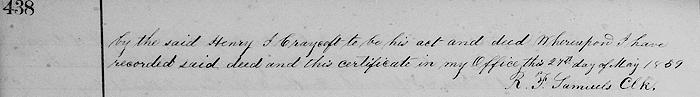 438
by the said Henry I Craycoft to be his act and deed Whereupon I have
recorded said deed and this certificate in my Office this 27th day of May 1859
R. F. Samuels Clk.